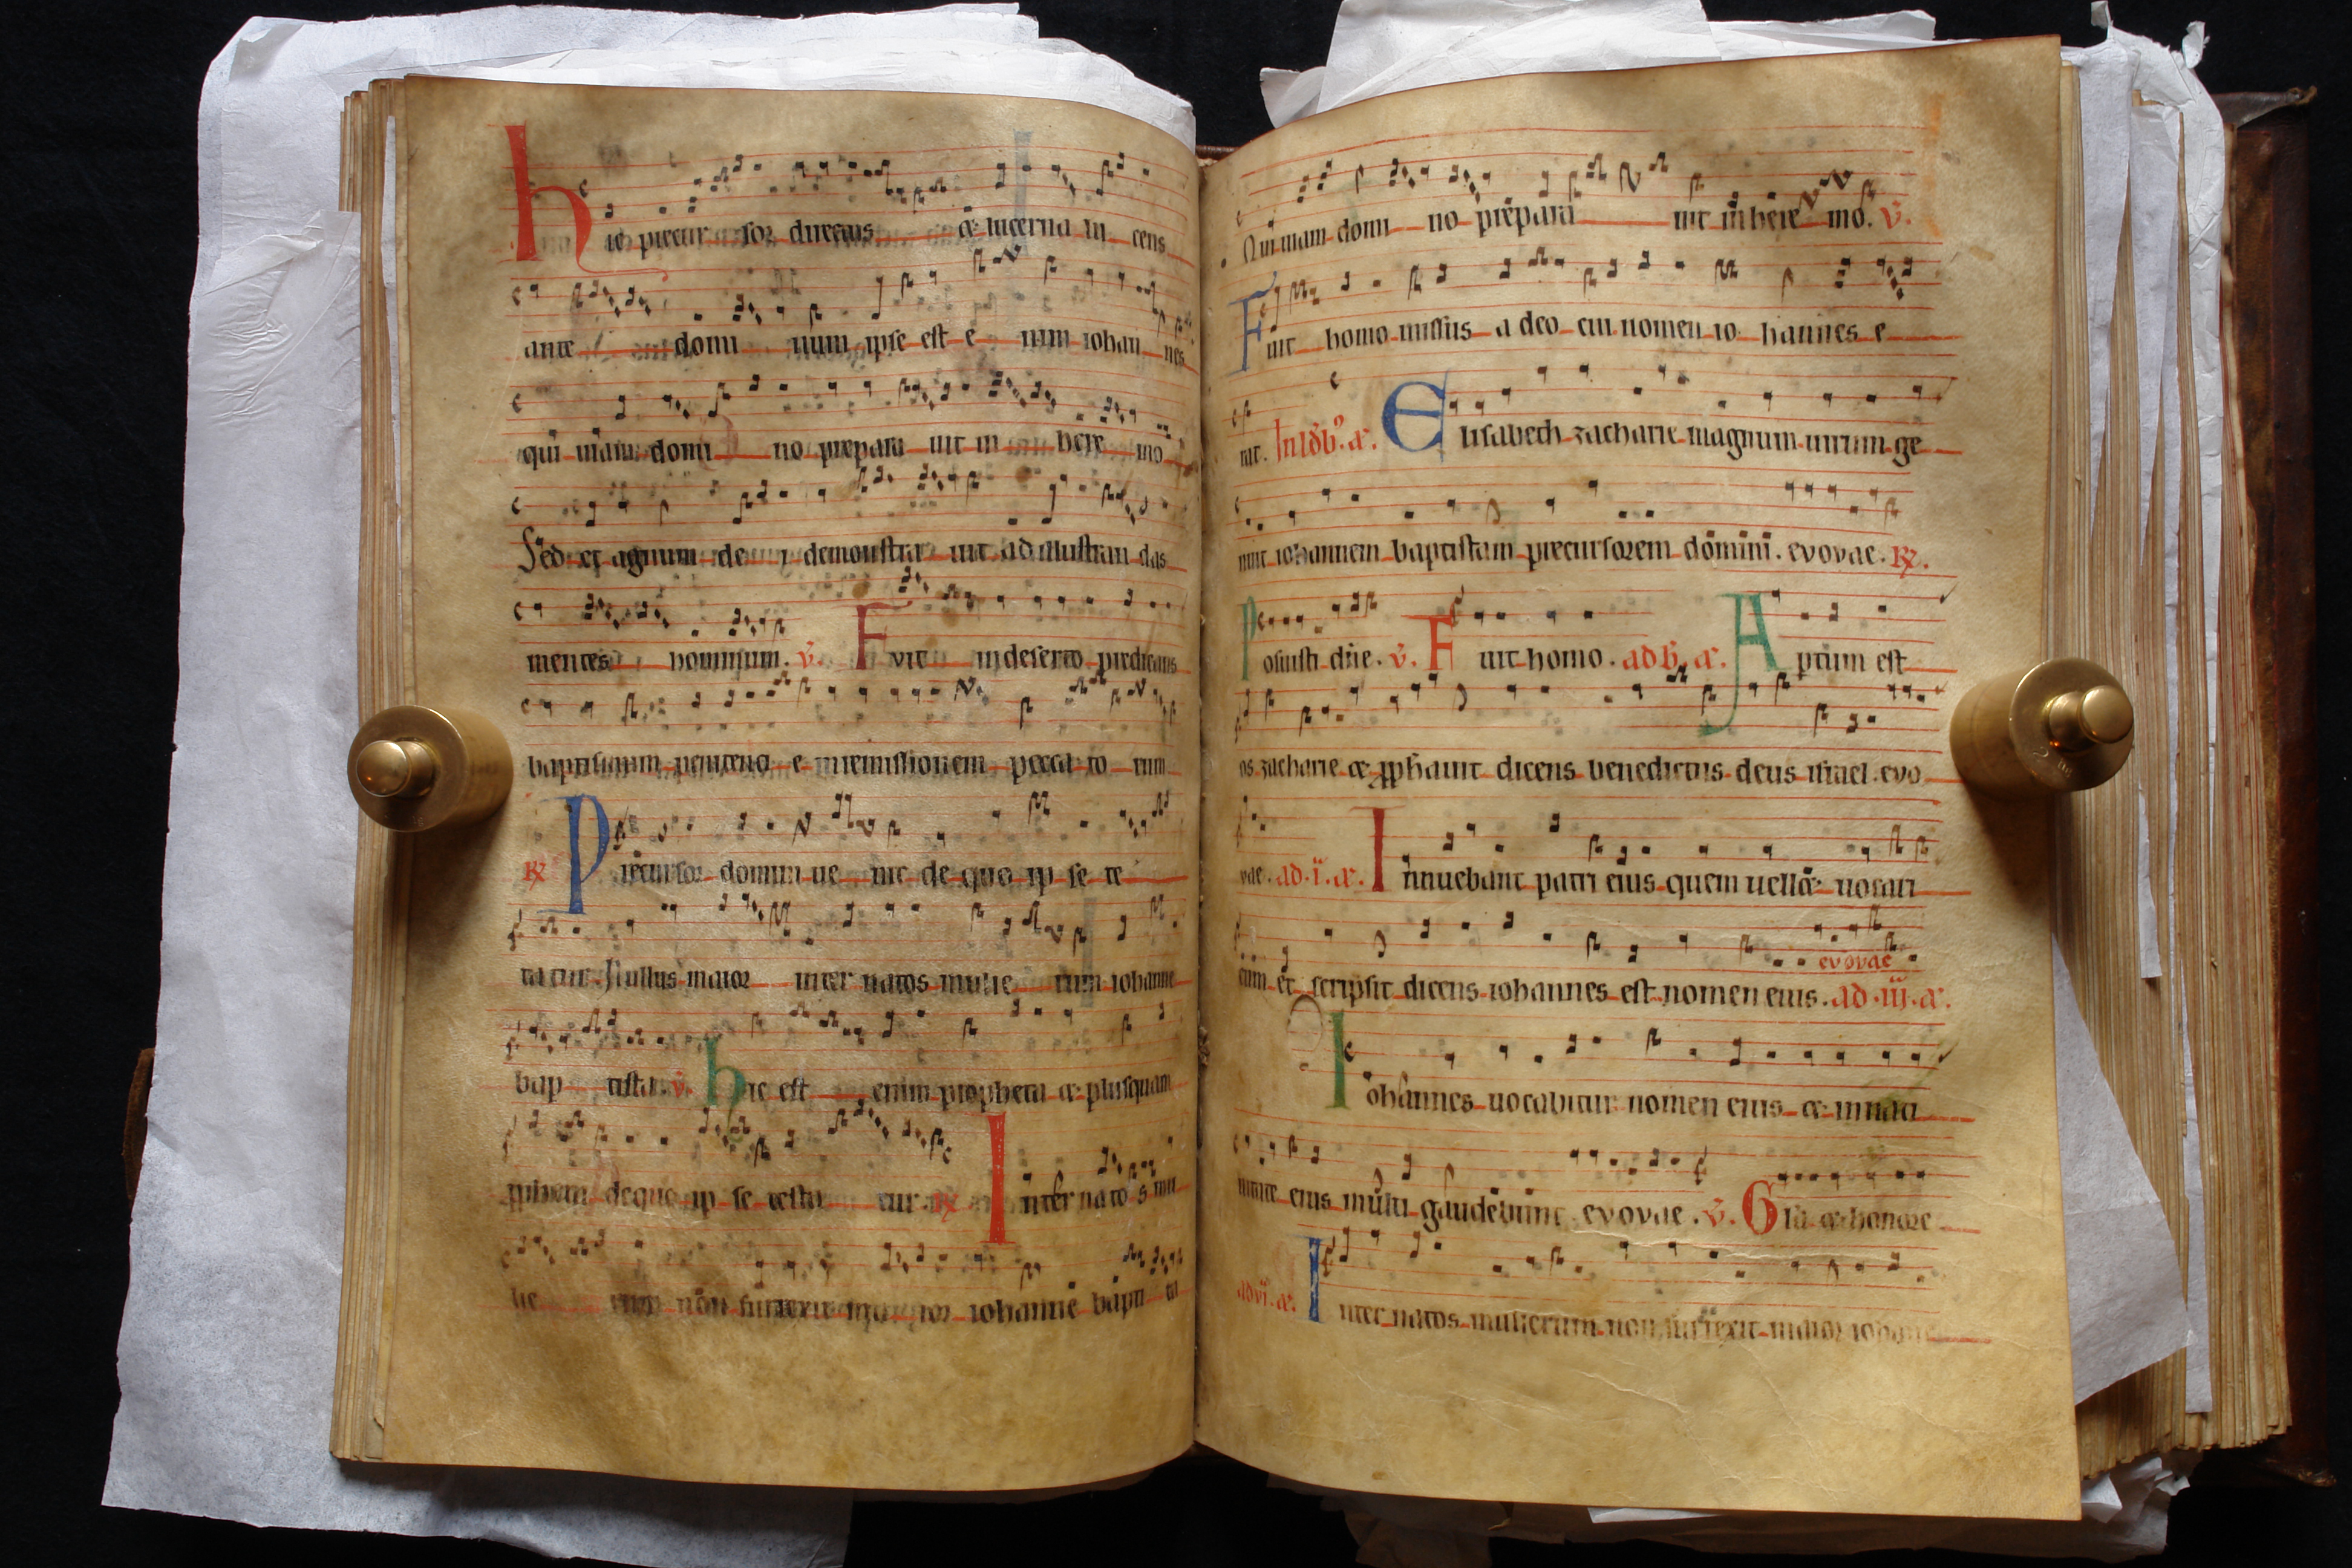 hic precur sor directus & lucerna lu cens
ante domi num ipse est e nim iohan nes
qui uiam domi no prepara uit in here mo
Sed et agnum de i demonstra uit ad illustran das
mentes hominum. v. Fvit in deserto predicans
baptismum penitenci e in remissionem pecca to rum
R Precursor domini ue nit de quo ip se te
statur. Nullus maior inter natos mulie rum iohanne
bap tista. v. hic est enim propheta & plusquam
propheta de quo ip se testa tur. R Inter nato s mu
lie rum non surrexit ma ior iohanne bapti sta
Qui uiam domi no prepara uit in here mo. v.
Fuit homo missus a deo cui nomen io hannes e
rat. In ldb. a. Elisabeth zacharie magnum uirum ge
nuit iohannem baptistam precursorem domini. evovae. R.
Posuisti dñe. v. Fuit homo. ad b. a. Aptum est
os zacharie & pphauit dicens benedictus deus israel. evo
vae. ad .i. a. Innuebant patri eius quem uellet uocari
eum et scripsit dicens iohannes est nomen eius. evovae ad .iii. a.
Iohannes uocabitur nomen eius & in nati
uitate eius multi gaudebunt evovae. v. Gla & honore
ad vi. a. Inter natos mulierum non surrexit maior iohanne